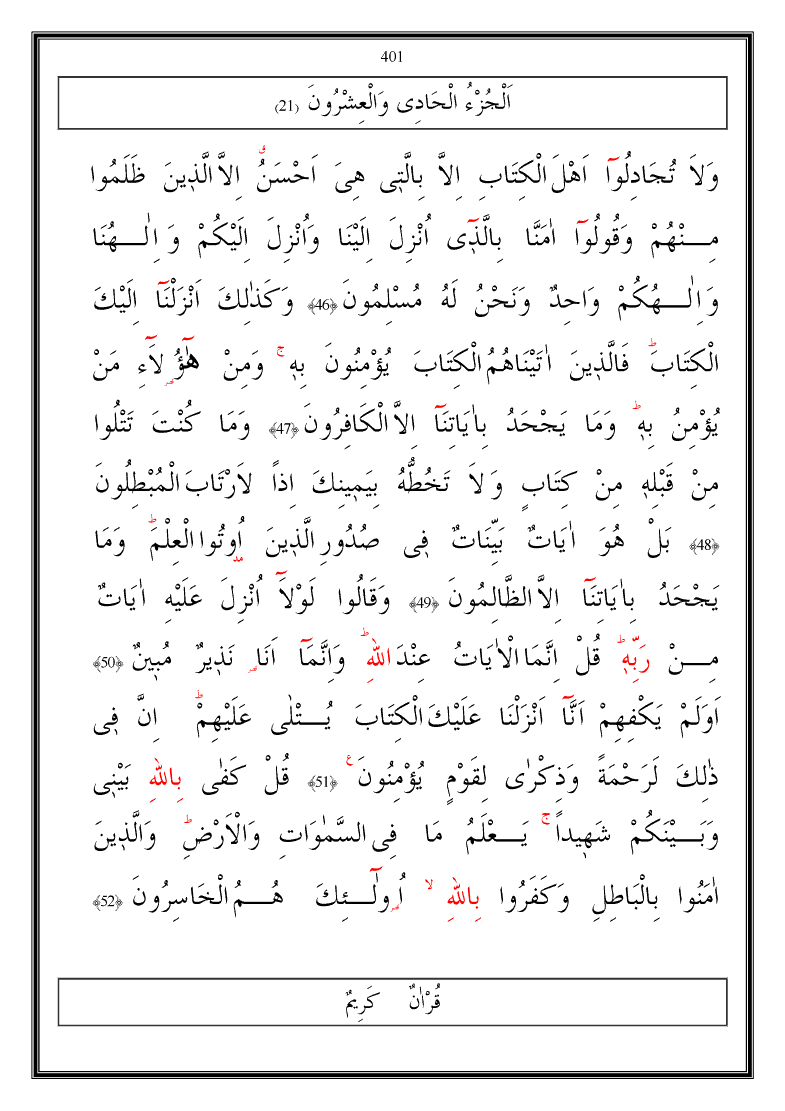 401
اَلْجُزْءُ الْحَادِى وَالْعِشْرُونَ (21)
وَلاَ تُجَادِلُوٓا اَهْلَ الْكِتَابِ اِلاَّ بِالَّتٖى هِىَ اَحْسَنُۗ اِلاَّ الَّذٖينَ ظَلَمُوا
مِـــنْهُمْ وَقُولُوٓا اٰمَنَّا بِالَّذٖٓى اُنْزِلَ اِلَيْنَا وَاُنْزِلَ اِلَيْكُمْ وَ اِلٰـــهُنَا
وَ اِلٰـــهُكُمْ وَاحِدٌ وَنَحْنُ لَهُ مُسْلِمُونَ ﴿46﴾ وَكَذٰلِكَ اَنْزَلْنَٓا اِلَيْكَ
الْكِتَابَؕ فَالَّذٖينَ اٰتَيْنَاهُمُ الْكِتَابَ يُؤْمِنُونَ بِهٖۚ وَمِنْ هٰٓؤُلَٓاءِ مَنْ
يُؤْمِنُ بِهٖؕ وَمَا يَجْحَدُ بِاٰيَاتِنَٓا اِلاَّ الْكَافِرُونَ ﴿47﴾ وَمَا كُنْتَ تَتْلُوا
مِنْ قَبْلِهٖ مِنْ كِتَابٍ وَ لاَ تَخُطُّهُ بِيَمٖينِكَ اِذاً لاَرْتَابَ الْمُبْطِلُونَ
﴿48﴾ بَلْ هُوَ اٰيَاتٌ بَيِّنَاتٌ فٖى صُدُورِ الَّذٖينَ اُوتُوا الْعِلْمَؕ وَمَا
يَجْحَدُ بِاٰيَاتِنَٓا اِلاَّ الظَّالِمُونَ ﴿49﴾ وَقَالُوا لَوْلَٓا اُنْزِلَ عَلَيْهِ اٰيَاتٌ
مِـــنْ رَبِّهٖؕ قُلْ اِنَّمَا الْاٰيَاتُ عِنْدَ اللهِؕ وَاِنَّمَٓا اَنَا نَذٖيرٌ مُبٖينٌ ﴿50﴾
اَوَلَمْ يَكْفِهِمْ اَنَّٓا اَنْزَلْنَا عَلَيْكَ الْكِتَابَ يُـــتْلٰى عَلَيْهِمْؕ اِنَّ فٖى
ذٰلِكَ لَرَحْمَةً وَذِكْرٰى لِقَوْمٍ يُؤْمِنُونَ ۧ ﴿51﴾ قُلْ كَفٰى بِاللهِ بَيْنٖى
وَبَـــيْنَكُمْ شَهٖيداًۚ يَـــعْلَمُ مَا فِى السَّمٰوَاتِ وَالْاَرْضِؕ وَالَّذٖينَ
اٰمَنُوا بِالْبَاطِلِ وَكَفَرُوا بِاللهِۙ اُولٰٓـــئِكَ هُـــمُ الْخَاسِرُونَ ﴿52﴾
قُرْاٰنٌ كَرِيمٌ